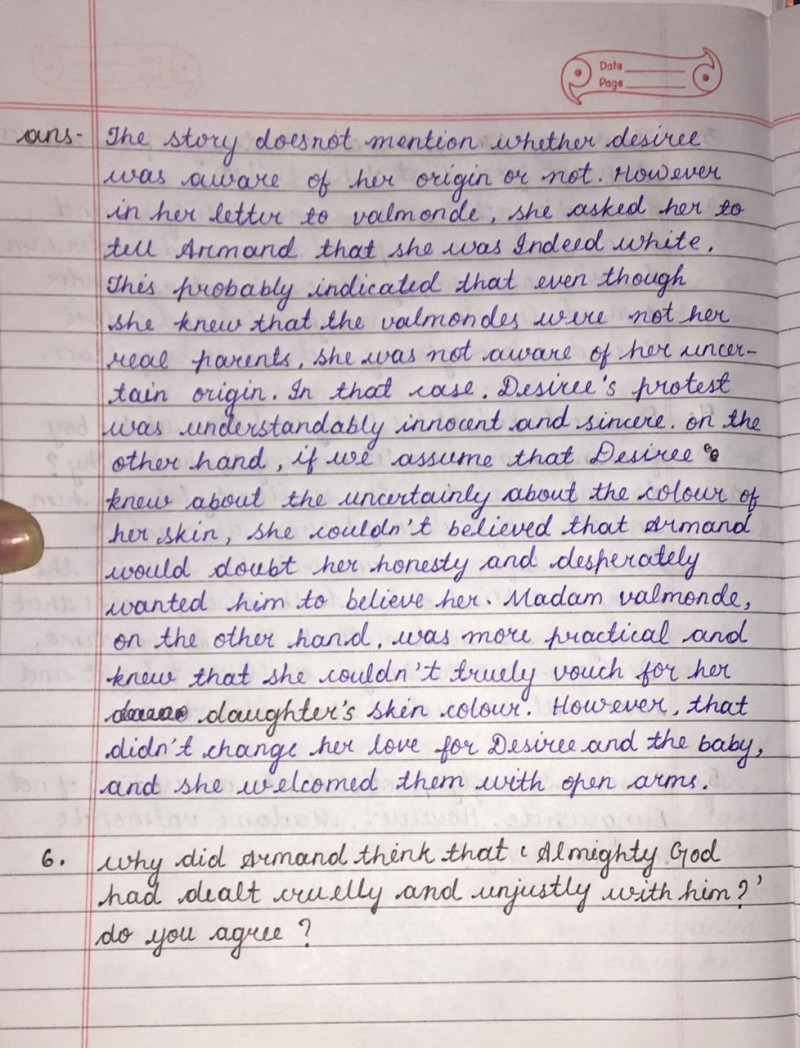 Date
Page
ans- The story doesnot mention whether desiree
was aware of her origin or not. However
in her letter to valmonde, she asked her to
tell Armand that she was Indeed white.
This probably indicated that even though
she knew that the valmondes were not her
real parents, she was not aware of her uncer-
tain origin. In that case. Desiree's protest
was understandably innocent and sincere. on the
other hand, if we assume that Desiree
knew about the uncertainly about the colour of
her skin, she couldn't believed that Armand
would doubt her honesty and desperately
wanted him to believe her. Madam valmonde,
on the other hand, was more practical and
knew that she couldn't truely vouch for her
daughter's skin colour. However, that
didn't change her love for Desiree and the baby,
and she welcomed them with open arms.
6. why did Armand think that 'Almighty God
had dealt cruelly and unjustly with him?'
do you agree?